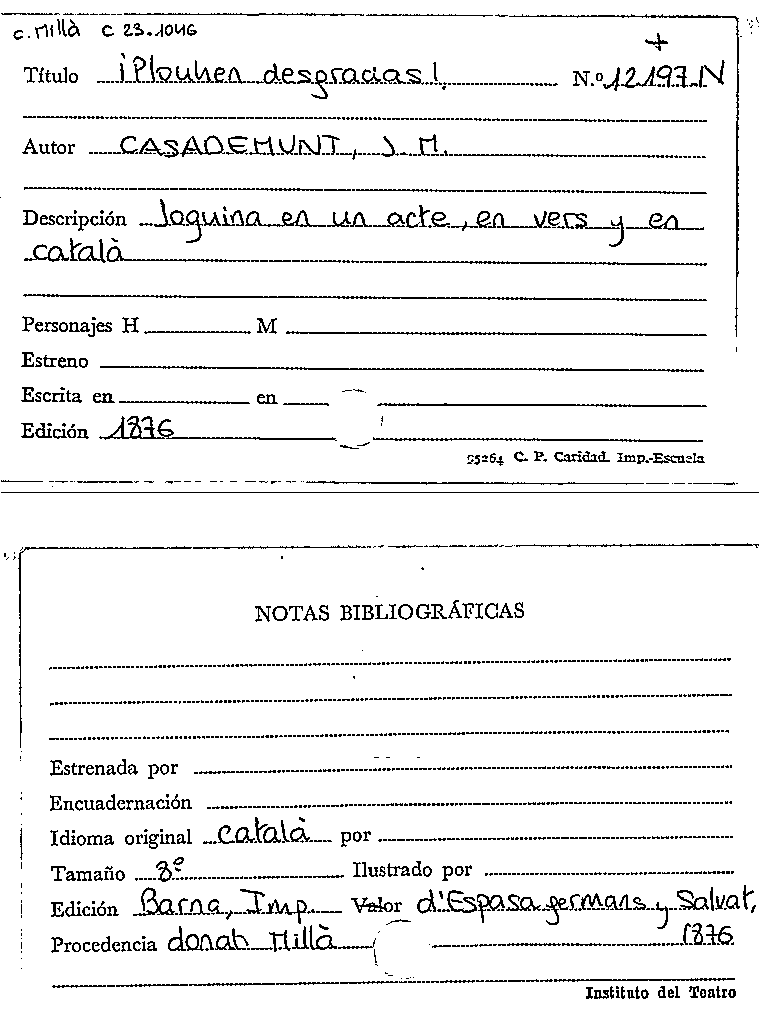 c. Millà C 23.1046
+
Título ¡Plouhen desgracias!. N.º 12197-N
Autor CASADEMUNT, J. M.
Descripción Joguina en un acte, en vers y en
català
Personajes H M
Estreno
Escrita en en
Edición 1876
95264 C. P. Caridad. Imp.-Escuela
NOTAS BIBLIOGRÁFICAS
Estrenada por
Encuadernación
Idioma original català por
Tamaño 8º Ilustrado por
Edición Barna, Imp. Valor d'Espasa germans y Salvat,
Procedencia donatı Millà 1876
Instituto del Teatro